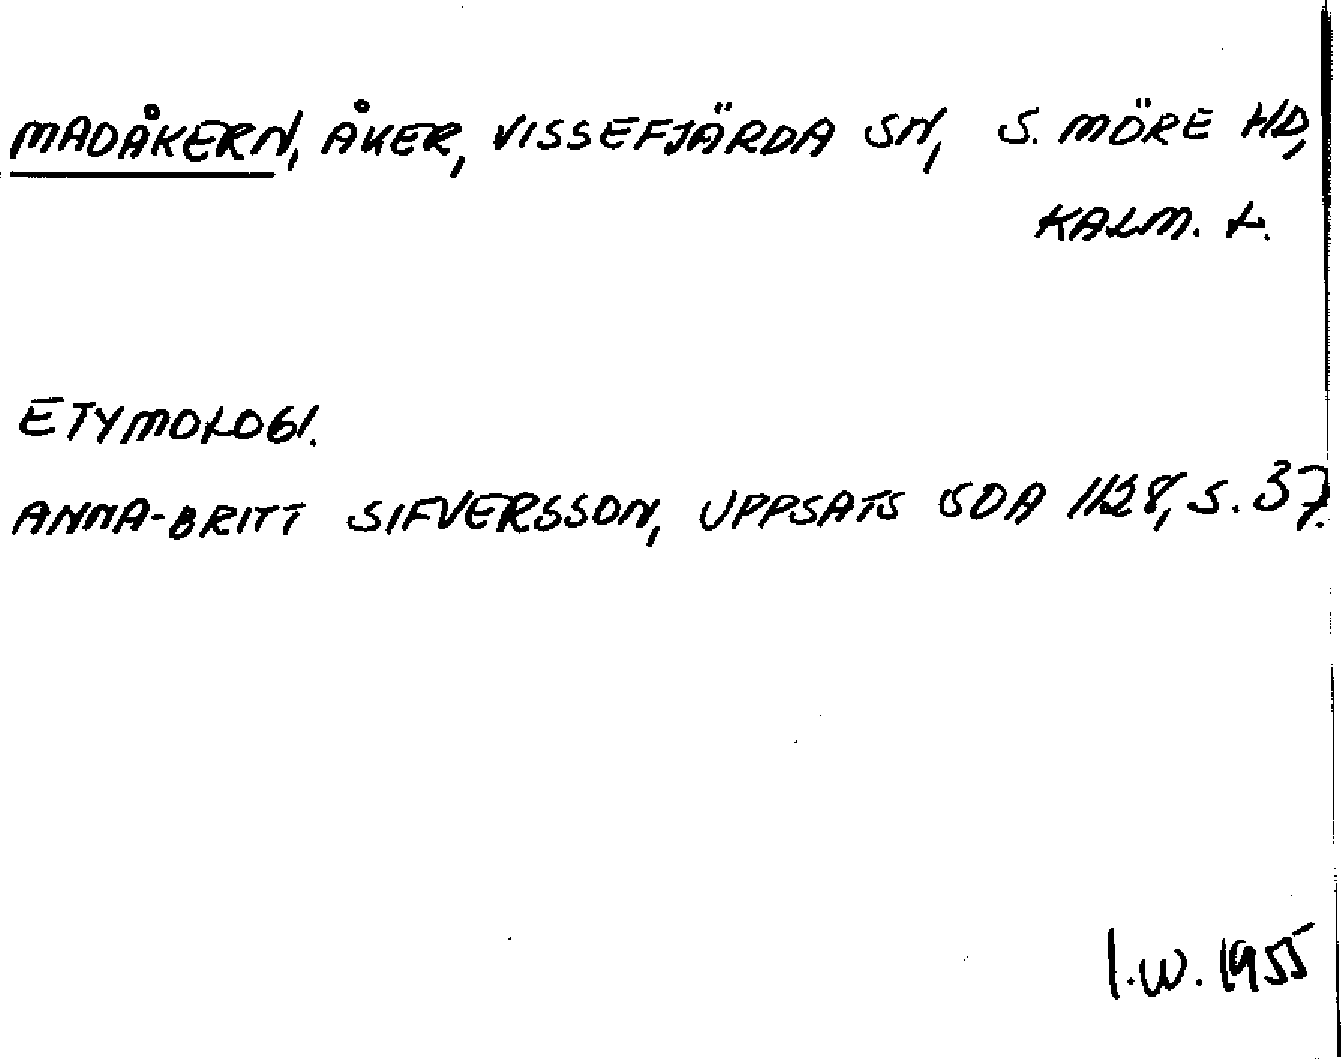 MADÅKERN, ÅKER, VISSEFJÄRDA SN, S. MÖRE HD,
KALM. L.
ETYMOLOGI.
ANNA-BRITT SIFVERSSON, UPPSATS SOA 1128, S. 37.
I.W. 1955